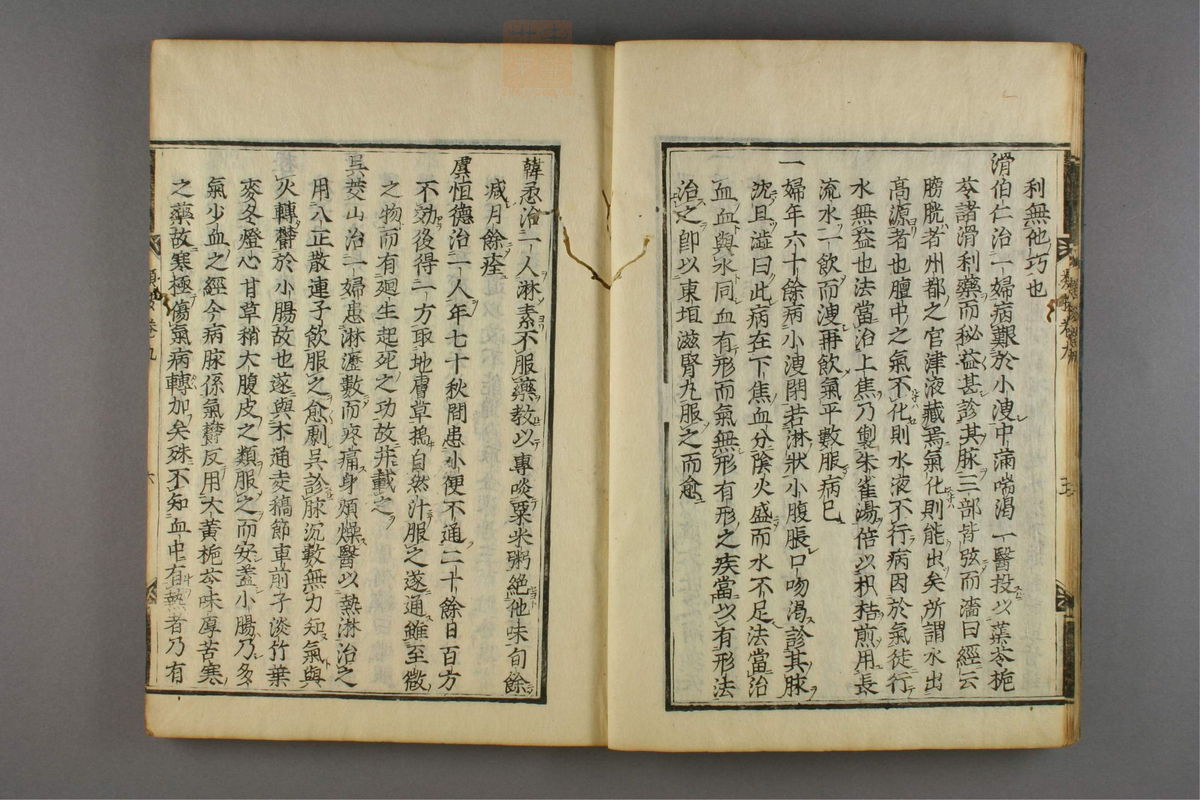 利無他巧也
滑伯仁治一婦病艱於小溲中滿喘渴一醫投以葉苓梔
苓諸滑利藥而秘益甚診其脉三部皆弦而濇曰經云
膀胱者州都之官津液藏焉氣化則能出矣所謂水出
高源者也膻中之氣不化則水液不行病因於氣徒行
水無益也法當治上焦乃製朱雀湯倍以枳桔煎用長
流水一飲而溲再飲氣平數服病已
一婦年六十餘病小溲閉若淋狀小腹脹口吻渴診其脉
沈且澁曰此病在下焦血分陰火盛而水不足法當治
血血與水同血有形而氣無形有形之疾當以有形法
治之卽以東垣滋腎丸服之而愈
韓悉澮一人淋素不服藥教以專啖粟米粥絶他味旬餘
减月餘痊
虞恒德治一人年七十秋間患小便不通二十餘日百方
不効後得一方取地膚草搗自然汁服之遂通雖至微
之物而有廻生起死之功故并載之
吳茭山治一婦患淋瀝數而疼痛身煩燥醫以熱淋治之
用八正散連子飲服之愈劇吳診脉沉數無力知氣與
火轉欝於小腸故也遂與木通走稿節車前子淡竹葉
麥冬燈心甘草稍大腹皮之類服之而安盖小腸乃多
氣少血之經今病脉係氣欝反用大黃梔苓味厚苦寒
之藥故寒極傷氣病轉加矣殊不知血中有熱者乃有
卷九